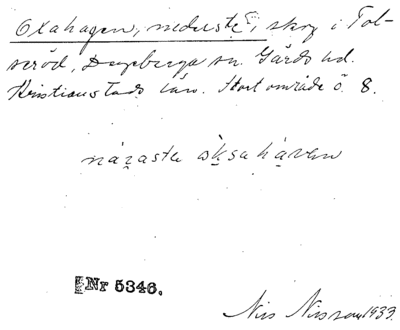 Oxahagen, nederste, skog i Tol-
seröd, Degeberga sn. Gärds hd.
Kristianstads län. Stort område ö. 8.
nárasta åksahávan
Nr 5346.
Nils Nilsson 1933.